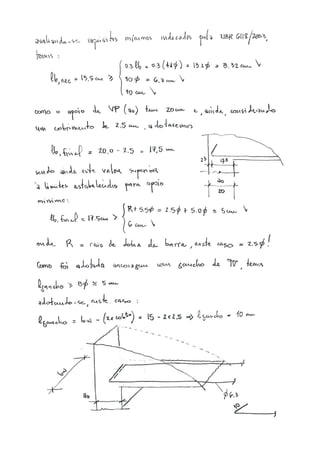 analisando-se requisitos mínimos indicados pela NBR 6118/2003,
temos:
0.3 lb = 0.3 (44ϕ) = 13.2ϕ = 8.32 cm
lb,nec = 13,5 cm ≥ 10ϕ = 6.3 cm
10 cm
como o apoio da VP (20) tem 20 cm e, ainda, considerando
um cobrimento de 2.5 cm, adotaremos
lb,final = 20.0 - 2.5 = 17,5 cm
sendo ainda este valor superior
à limites estabelecidos para apoio
20
20
mínimo:
lb,final = 17.5 cm > R + 5.5ϕ = 2.5ϕ + 5.0ϕ ≈ 5 cm
6 cm
onde R = raio de dobra da barra, neste caso = 2.5ϕ!
Como foi adotada ancoragem com gancho de , temos
lgancho ≥ 8ϕ ≈ 5 cm
adotando-se, neste caso:
lgancho = bw - (2x cobto) = 15 - 2x2,5 ⇒ lgancho = 10 cm
bw
ϕ6.3
10